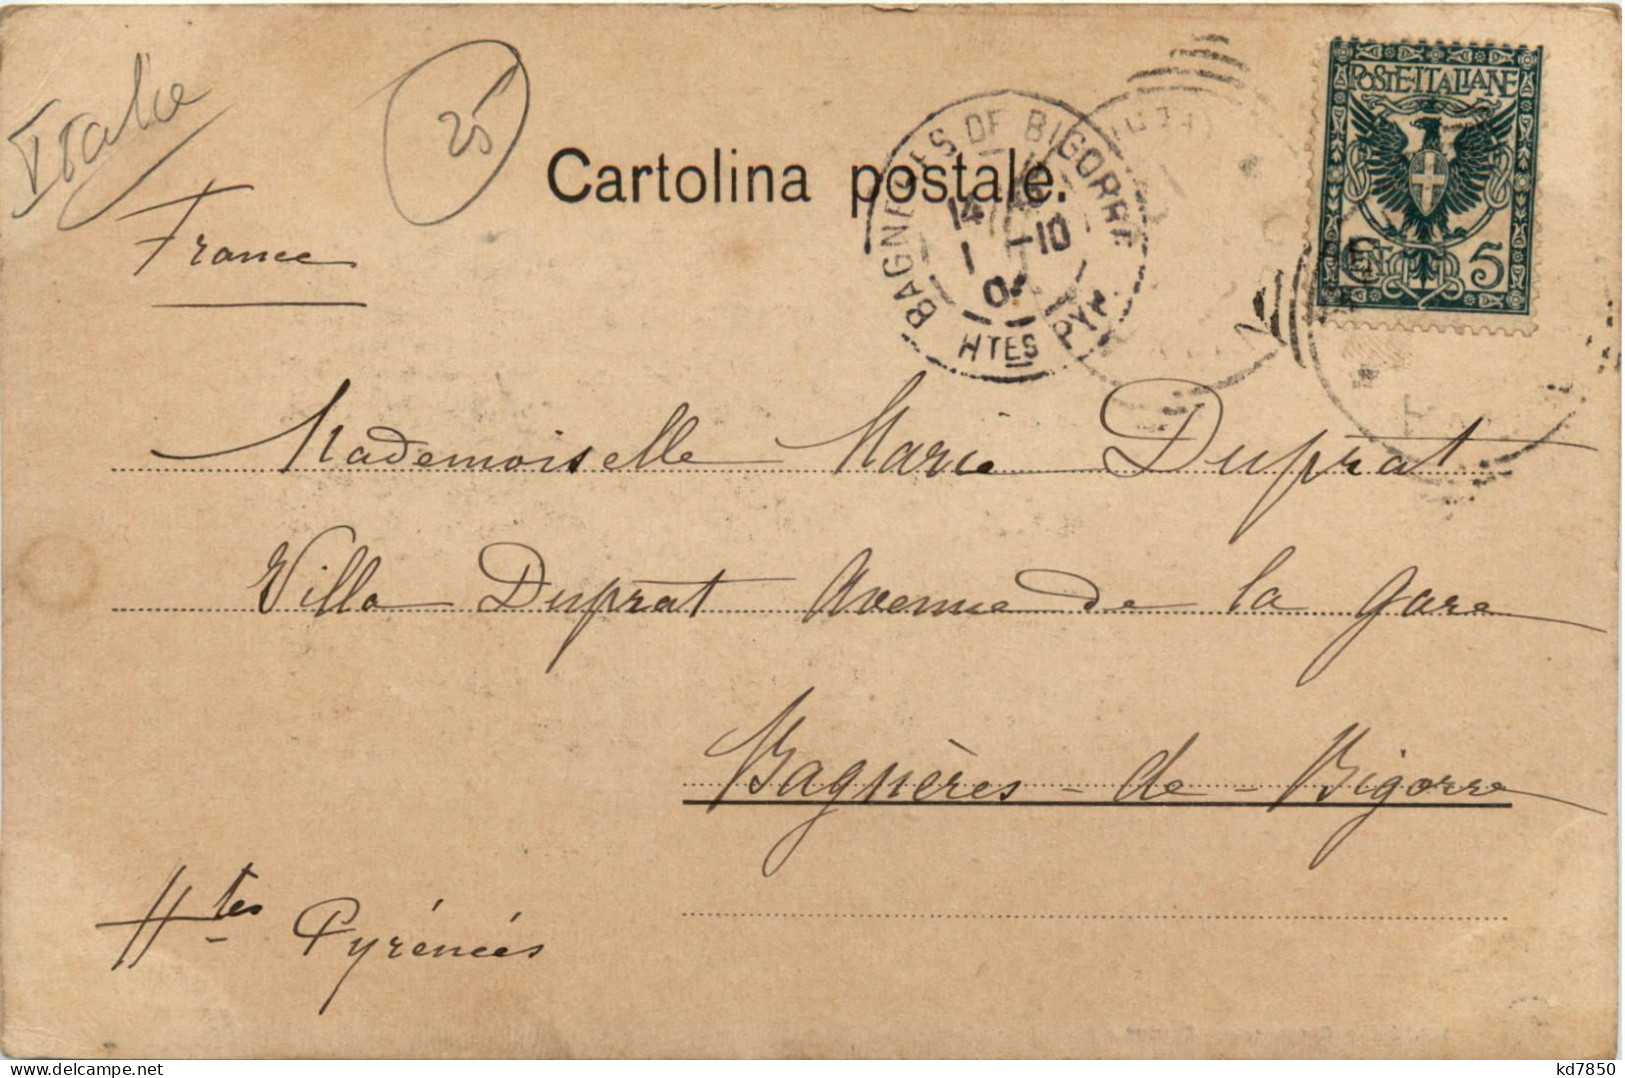 Italie
25
France
Cartolina postale.
BAGNERES DE BIGORRE
14
1-10
1
HTES PYR
POSTE·ITALIANE
CEN 5
Mademoiselle Marie Duprat
Villa Duprat Avenue de la gare
Bagnères-de-Bigorre
Htes Pyrénées
kd7850